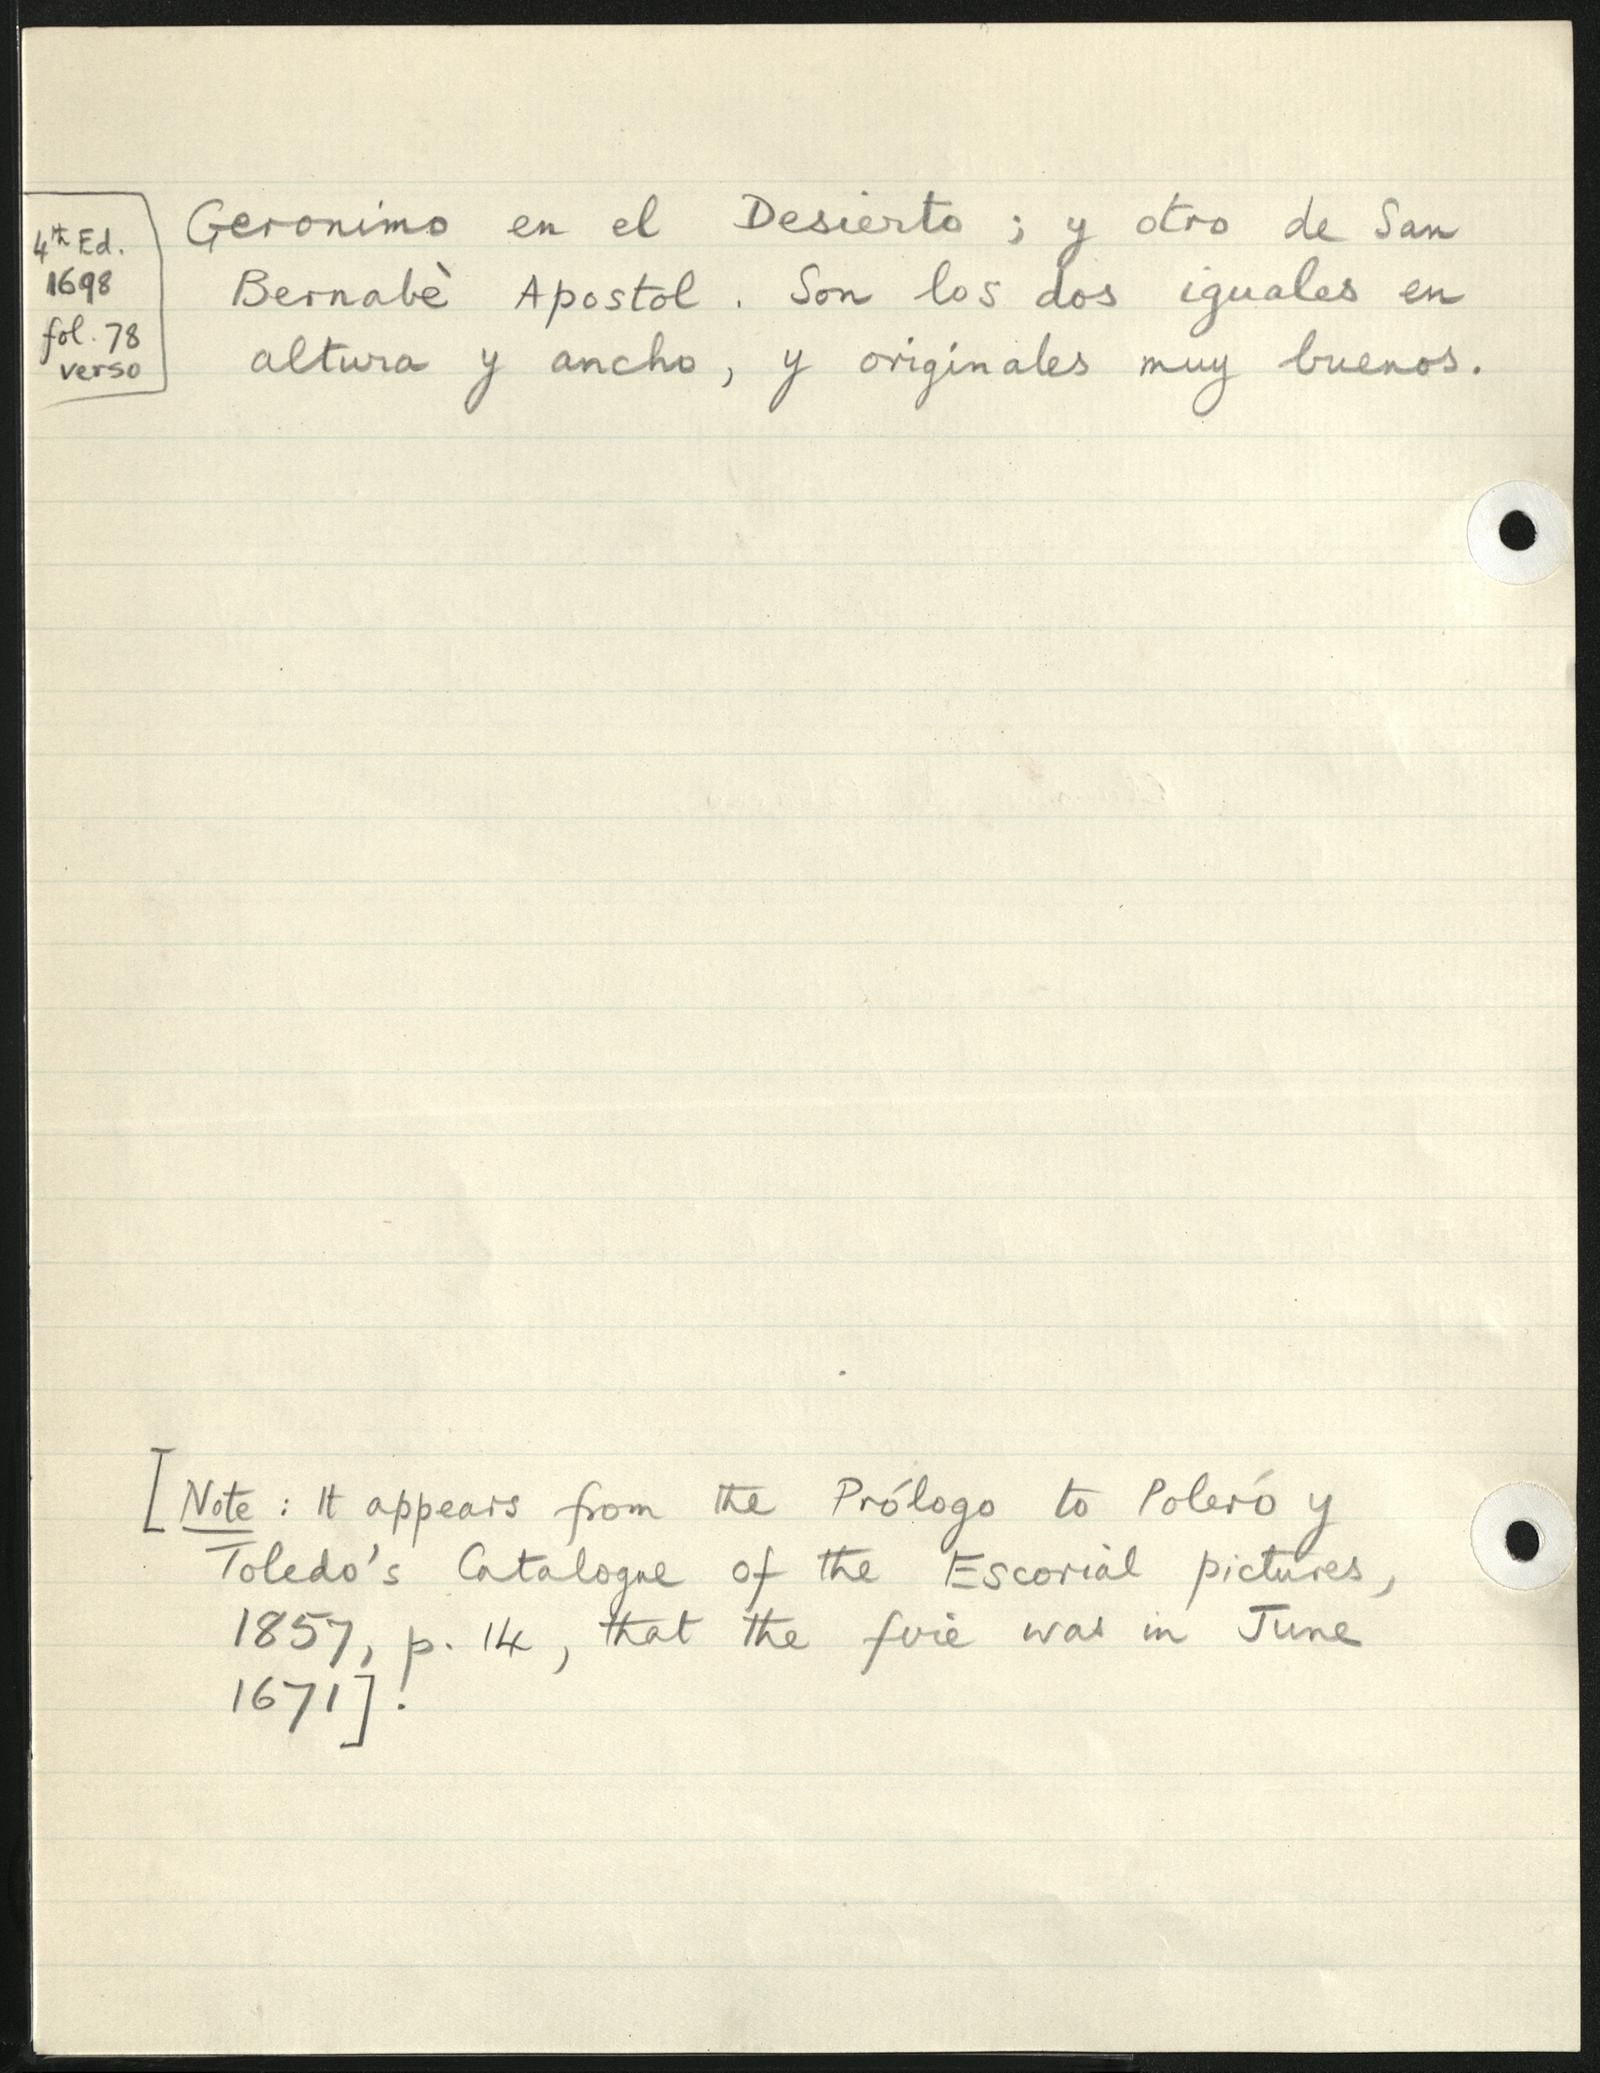 4th Ed.
1698
fol. 78
verso
Geronimo en el Desierto ; y otro de San
Bernabè Apostol. Son los dos iguales en
altura y ancho, y originales muy buenos.
[Note : It appears from the Prólogo to Poleró y
Toledo's Catalogue of the Escorial pictures,
1857, p. 14, that the fire was in June
1671].